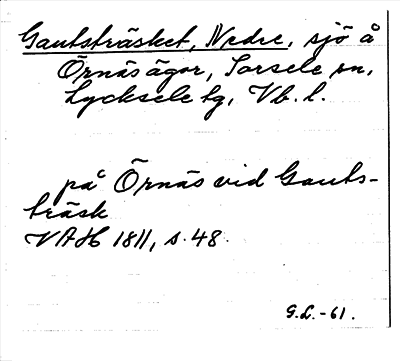 Gautsträsket, Nedre, sjö å
Örnäs ägor, Sorsele sn,
Lycksele lg, Vb. l.
på Örnäs vid Gauts-
träsk
VAH 1811, s. 48.
G.L.-61.